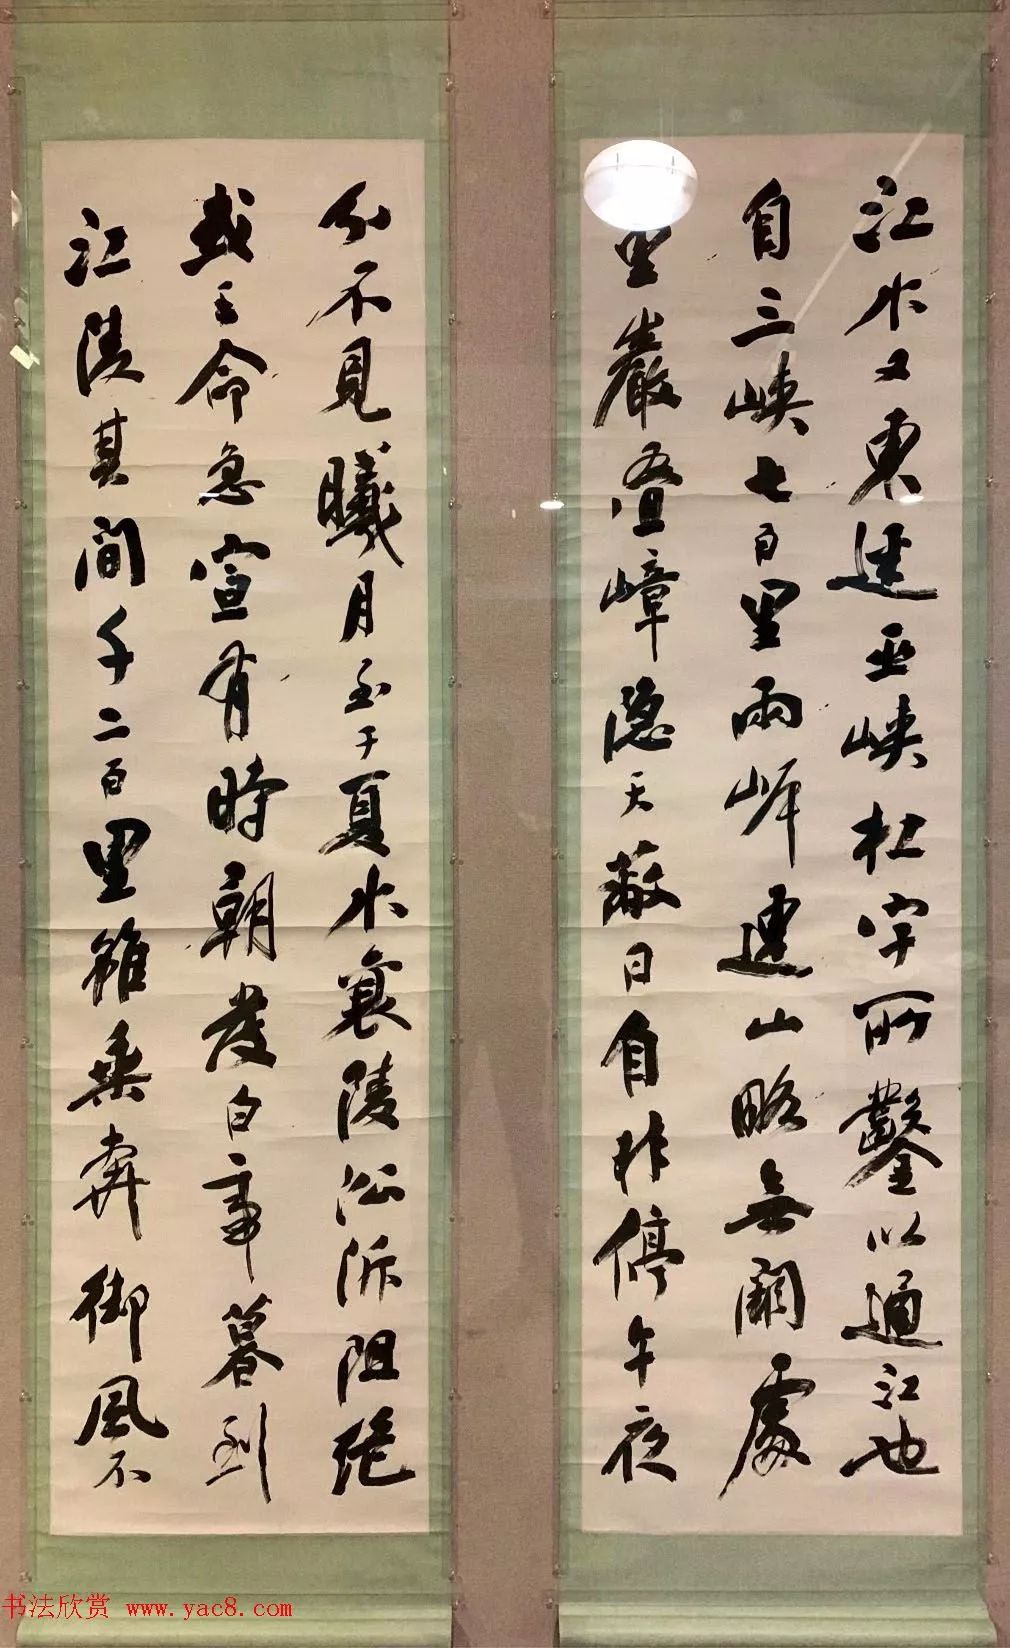 江水又東逕巫峽杜宇所鑿以通江也
自三峽七百里兩岸連山略無闕處
重巖叠嶂隱天蔽日自非停午夜
分不見曦月至于夏水襄陵沿泝阻絕
或王命急宣有時朝發白帝暮到
江陵其間千二百里雖乘奔御風不
书法欣赏 www.yac8.com